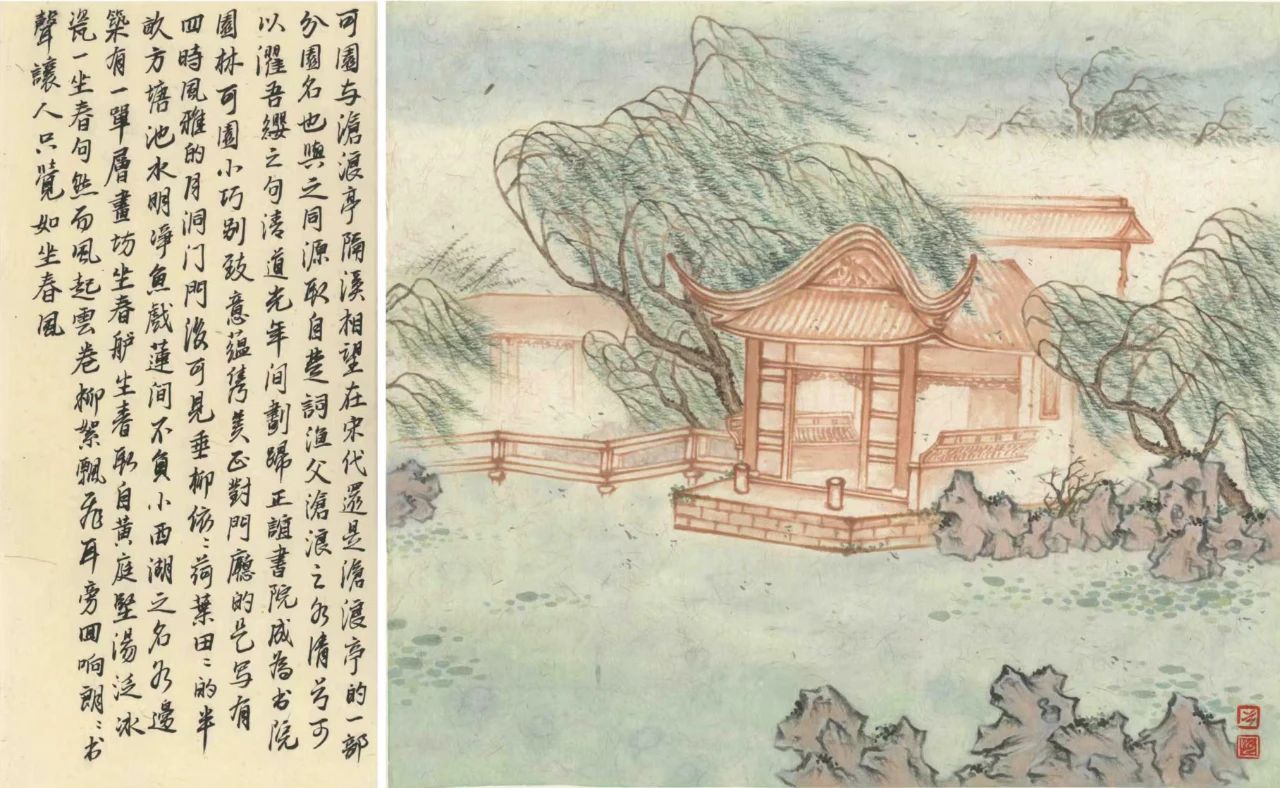 可園与滄浪亭隔溪相望在宋代還是滄浪亭的一部
分園名也與之同源取自楚詞渔父滄浪之水清兮可
以濯吾纓之句清道光年间劃歸正誼書院成為书院
園林可園小巧别致意蕴雋美正對門廳的是写有
四時風雅的月洞门門後可見垂柳依:荷葉田:的半
畝方塘池水明淨魚戲蓮间不負小西湖之名水邊
築有一單層畫坊坐春舻坐春取自黄庭堅湯泛冰
瓷一坐春句然而風起雲卷柳絮飄飛耳旁回响朗:书
聲讓人只覺如坐春風